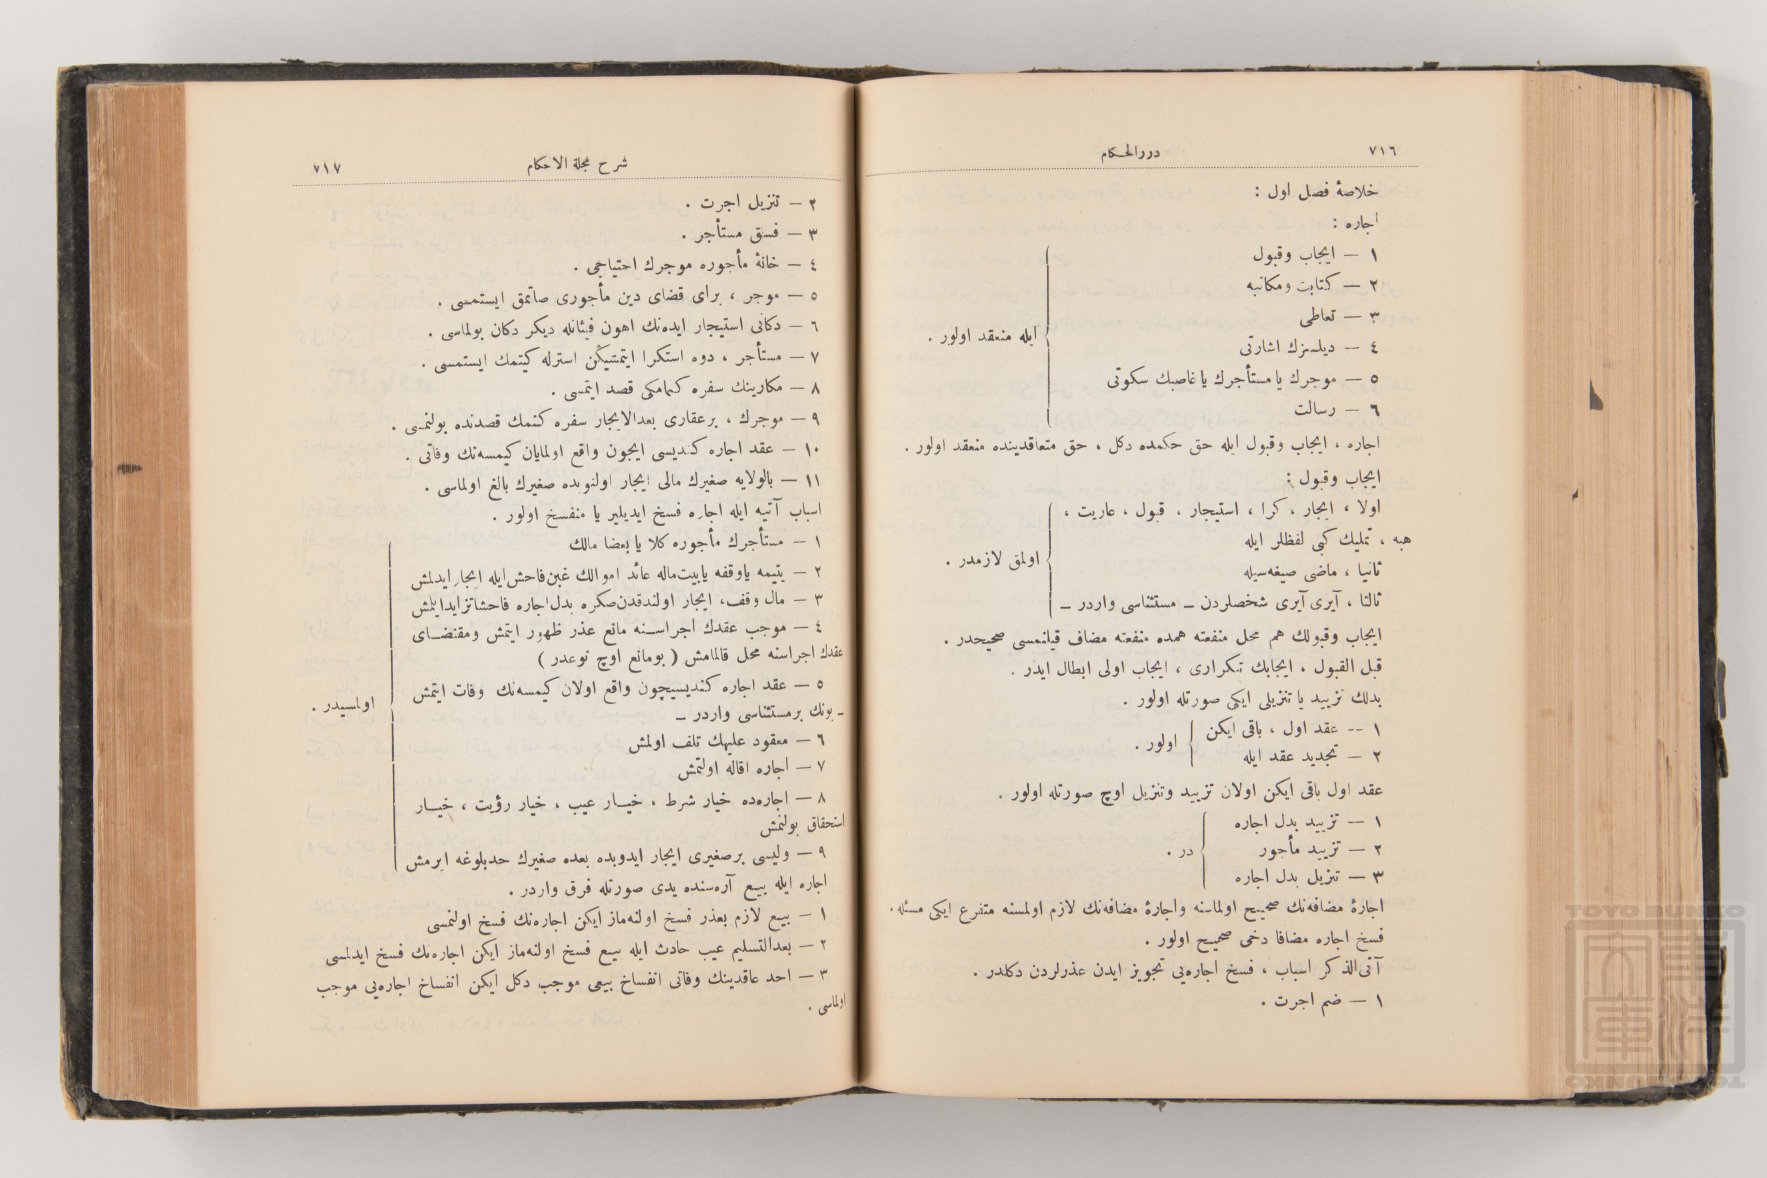 ٧١٦
دررالحكام
خلاصهٔ فصل اول :
اجاره :
١ — ايجاب وقبول
٢ — كتابت ومكاتبه
٣ — تعاطى
٤ — ديلسزك اشارتى
٥ — موجرك يا مستأجرك يا غاصبك سكوتى
٦ — رسالت
ايله منعقد اولور .
اجاره ، ايجاب وقبول ايله حق حكمده دكل ، حق متعاقدينده منعقد اولور .
ايجاب وقبول :
اولا ، ايجار ، كرا ، استيجار ، قبول ، عاريت ،
هبه ، تمليك كبى لفظلر ايله
ثانيا ، ماضى صيغه‌سيله
ثالثا ، آيرى آيرى شخصلردن — مستثناسى واردر —
اولمق لازمدر .
ايجاب وقبولك هم محل منفعته همده منفعته مضاف قيلنمسى صحيحدر .
قبل القبول ، ايجابك تكرارى ، ايجاب اولى ابطال ايدر .
بدلك تزييد يا تنزيلى ايكى صورتله اولور .
١ -- عقد اول ، باقى ايكن
٢ — تجديد عقد ايله
اولور .
عقد اول باقى ايكن اولان تزييد وتنزيل اوچ صورتله اولور .
١ — تزييد بدل اجاره
٢ — تزييد مأجور
٣ — تنزيل بدل اجاره
در .
اجارهٔ مضافه‌نك صحيح اولماسنه واجارهٔ مضافه‌نك لازم اولمسنه متفرع ايكى مسئله .
فسخ اجاره مضافا دخى صحيح اولور .
آتى‌الذكر اسباب ، فسخ اجاره‌يى تجويز ايدن عذرلردن دكلدر .
١ — ضم اجرت .
شرح مجلة الاحكام
٧١٧
٢ — تنزيل اجرت .
٣ — فسق مستأجر .
٤ — خانهٔ مأجوره موجرك احتياجى .
٥ — موجر ، براى قضاى دين مأجورى صاتمق ايستمسى .
٦ — دكانى استيجار ايدەنك اهون فيئاتله ديكر دكان بولماسى .
٧ — مستأجر ، دوه استكرا ايتمشيكن استرله كيتمك ايستمسى .
٨ — مكارينك سفره كيمامكى قصد ايتمسى .
٩ — موجرك ، برعقارى بعدالايجار سفره كتمك قصدنده بولنمسى .
١٠ — عقد اجاره كنديسى ايچون واقع اولمايان كيمسه‌نك وفاتى .
١١ — بالولايه صغيرك مالى ايجار اولنوبده صغيرك بالغ اولماسى .
اسباب آتيه ايله اجاره فسخ ايديلير يا منفسخ اولور .
١ — مستأجرك مأجوره كلا يا بعضا مالك
٢ — يتيمه ياوقفه يابيت‌ماله عائد اموالك غبن‌فاحش‌ايله ايجار ايدلمش
٣ — مال وقف، ايجار اولندقدن‌صكره بدل اجاره فاحشا تزايد ايلمش
٤ — موجب عقدك اجراسنه مانع عذر ظهور ايتمش ومقتضاى
عقدك اجراسنه محل قالمامش ( بومانع اوچ نوعدر )
٥ — عقد اجاره كنديسيچون واقع اولان كيمسه‌نك وفات ايتمش
— بونك برمستثناسى واردر —
٦ — معقود عليهك تلف اولمش
٧ — اجاره اقاله اولنمش
٨ — اجاره‌ده خيار شرط ، خيار عيب ، خيار رؤيت ، خيار
استحقاق بولنمش
٩ — وليسى برصغيرى ايجار ايدوبده بعده صغيرك حدبلوغه ايرمش
اولمسيدر .
اجاره ايله بيع آره‌سنده يدى صورتله فرق واردر .
١ — بيع لازم بعذر فسخ اولنه‌ماز ايكن اجاره‌نك فسخ اولنمسى
٢ — بعدالتسليم عيب حادث ايله بيع فسخ اولنه‌ماز ايكن اجاره‌نك فسخ ايدلمسى
٣ — احد عاقدينك وفاتى انفساخ بيعى موجب دكل ايكن انفساخ اجاره‌يى موجب
اولماسى .
TOYO BUNKO
東洋文庫
TOYO BUNKO